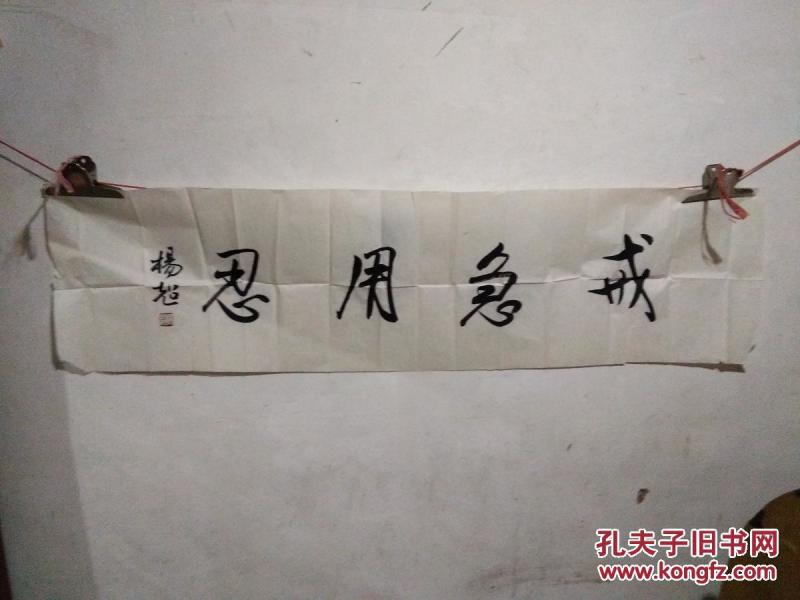 戒急用忍
楊超
孔夫子旧书网
www.kongfz.com